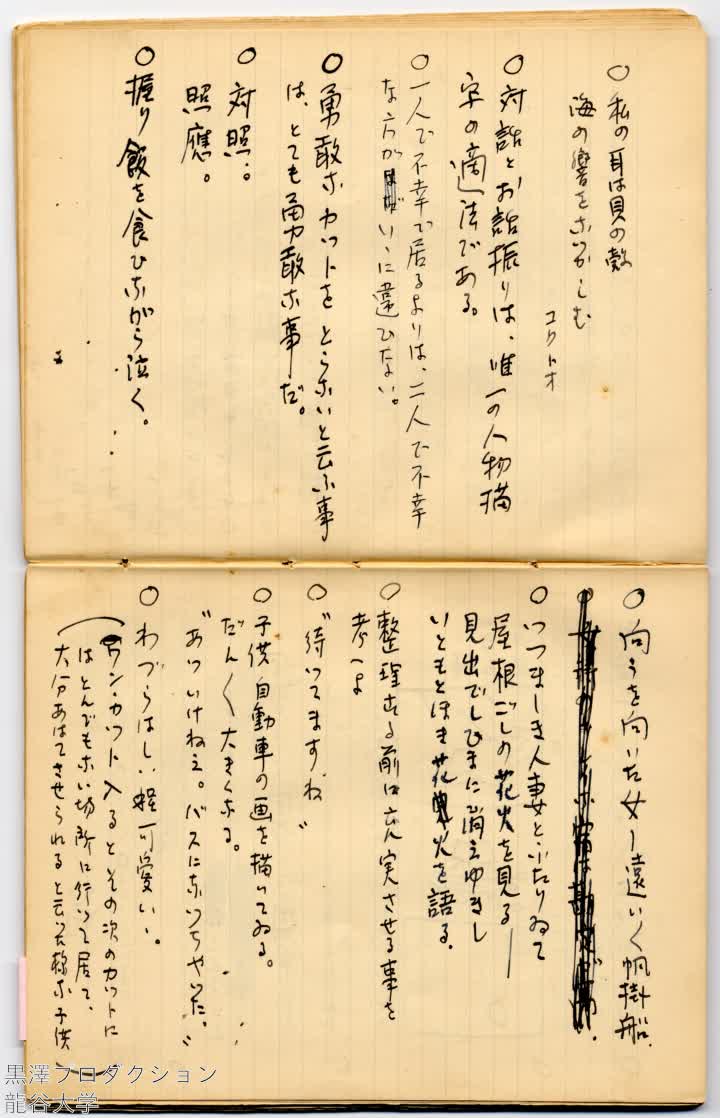 ○ 私の耳は貝の殻
海の響をなつかしむ
コクトオ
○ 対話とお話振りは、唯一の人物描
写の適法である。
○ 一人で不幸で居るよりは、二人で不幸
な方がいゝに違ひない。
○ 勇敢なカットをとらないと云ふ事
は、とても勇敢な事だ。
○ 対照。
照應。
○ 握り飯を食ひながら泣く。
○ 向うを向いた女ー遠いく帆掛船.
○ いつましき人妻とふたりゐて
屋根ごしの花火を見る―
見出でしひまに消えゆきし
いともとほき花火を語る.
○ 整理する前は充実させる事を
考へよ
○ "待ってますね"
○ 子供自動車の画を描いてゐる。
だん〱大きくなる。
"あっいけねえ。バスになっちやいた。"
○ わづらはしい程可愛いゝ.
(ワン・カット入るとその次のカットに
はとんでもない場所に行って居て、
大分あはてさせられると云った様な子供)
黒澤プロダクション
龍谷大学